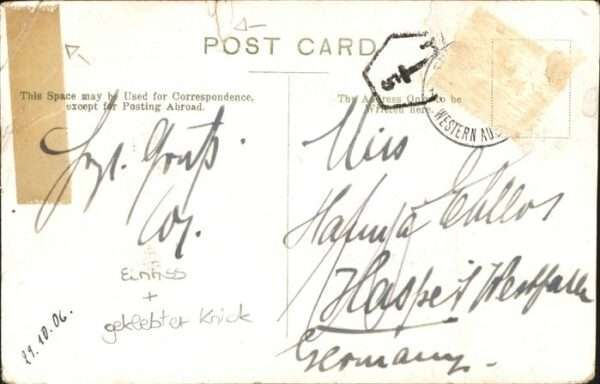 POST CARD
This Space may be Used for Correspondence,
except for Posting Abroad.
The Address Only to be
Written here.
WESTERN AU
T
5
Gruß
Miss
Haspe i/ Westfalen
Germany.
Einriss
+
geklebter Knick
29.10.06.